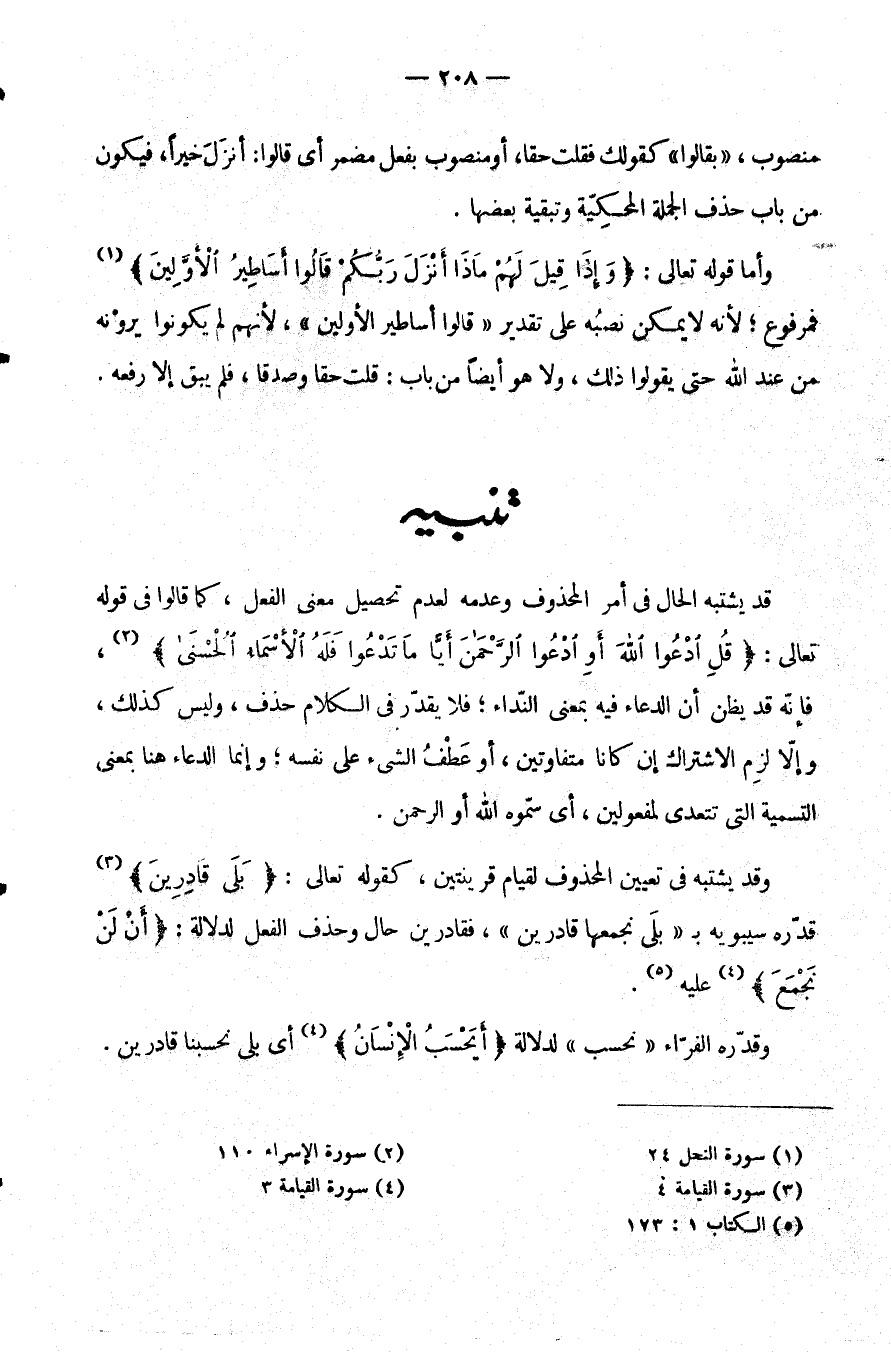 — ٢٠٨ —
منصوب ، «بقالوا» كقولك فقلت حقا، أومنصوب بفعل مضمر أى قالوا: أنزَلَ خيراً، فيكون
من باب حذف الجملة المحكيّة وتبقية بعضها .
وأما قوله تعالى : ﴿ وَ إِذَا قِيلَ لَهُمْ مَاذَا أَنْزَلَ رَبُّكُمْ قَالُوا أَسَاطِيرُ ٱلْأَوَّلِينَ ﴾ (١)
فمرفوع ؛ لأنه لايمكن نصبُه على تقدير « قالوا أساطير الأولين » ، لأنهم لم يكونوا يروْنه
من عند الله حتى يقولوا ذلك ، ولا هو أيضاً من باب : قلت حقا وصدقا ، فلم يبق إلا رفعه .
تنبيه
قد يشتبه الحال فى أمر المحذوف وعدمه لعدم تحصيل معنى الفعل ، كما قالوا فى قوله
تعالى : ﴿ قُلِ ٱدْعُوا ٱللهَ أَوِ ٱدْعُوا ٱلرَّحْمٰنَ أَيًّا مَا تَدْعُوا فَلَهُ ٱلْأَسْمَاءُ ٱلْحُسْنَىٰ ﴾ (٢) ،
فإنّه قد يظن أن الدعاء فيه بمعنى النّداء ؛ فلا يقدّر فى الكلام حذف ، وليس كذلك ،
و إلّا لزم الاشتراك إن كانا متفاوتين ، أو عَطْفُ الشىء على نفسه ؛ و إنما الدعاء هنا بمعنى
التسمية التى تتعدى لمفعولين ، أى سمّوه الله أو الرحمن .
وقد يشتبه فى تعيين المحذوف لقيام قرينتين ، كقوله تعالى : ﴿ بَلَى قَادِرِينَ ﴾ (٣)
قدّره سيبويه بـ « بلَى نجمعها قادرين » ، فقادرين حال وحذف الفعل لدلالة : ﴿ أَنْ لَنْ
نَجْمَعَ ﴾ (٤) عليه (٥) .
وقدّره الفرّاء « نحسب » لدلالة ﴿ أَيَحْسَبُ الْإِنْسَانُ ﴾ (٤) أى بلى نحسبنا قادرين .
(١) سورة النحل ٢٤
(٢) سورة الإسراء ١١٠
(٣) سورة القيامة ٤
(٤) سورة القيامة ٣
(٥) الكتاب ١ : ١٧٣